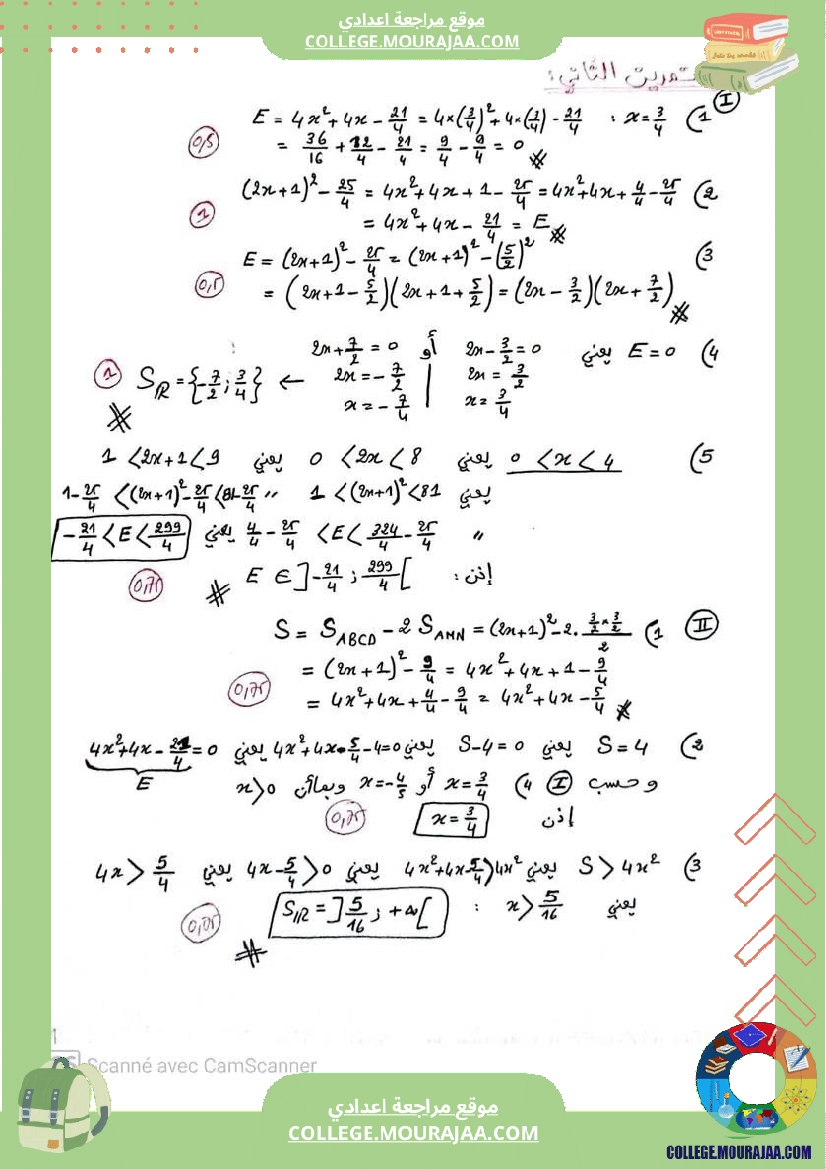 موقع مراجعة اعدادي
COLLEGE.MOURAJAA.COM
تمرين الثاني:
I
1) x = 3/4 : E = 4x² + 4x - 21/4 = 4×(3/4)² + 4×(3/4) - 21/4
= 36/16 + 12/4 - 21/4 = 9/4 - 9/4 = 0
0,5
2) (2x+1)² - 25/4 = 4x² + 4x + 1 - 25/4 = 4x² + 4x + 4/4 - 25/4
= 4x² + 4x - 21/4 = E
1
3) E = (2x+1)² - 25/4 = (2x+1)² - (5/2)²
= (2x+1 - 5/2)(2x+1 + 5/2) = (2x - 3/2)(2x + 7/2)
0,5
4) E = 0 يعني 2x - 3/2 = 0 أو 2x + 7/2 = 0
2x = 3/2 | 2x = -7/2
x = 3/4 | x = -7/4
← S_IR = {-7/2 ; 3/4}
1
5) 0 < x < 4 يعني 0 < 2x < 8 يعني 1 < 2x+1 < 9
يعني 1 < (2x+1)² < 81 " 1 - 25/4 < (2x+1)² - 25/4 < 81 - 25/4
" 4/4 - 25/4 < E < 324/4 - 25/4 يعني -21/4 < E < 299/4
إذن : E ∈ ]-21/4 ; 299/4[
0,75
II
1) S = S_ABCD - 2 S_AMN = (2x+1)² - 2. (3/2 × 3/2)/2
= (2x+1)² - 9/4 = 4x² + 4x + 1 - 9/4
= 4x² + 4x + 4/4 - 9/4 = 4x² + 4x - 5/4
0,75
2) S = 4 يعني S - 4 = 0 يعني 4x² + 4x - 5/4 - 4 = 0 يعني 4x² + 4x - 21/4 = 0
E
و حسب I 4) x = 3/4 أو x = -4/5 وبما أن x > 0
إذن x = 3/4
0,75
3) S > 4x² يعني 4x² + 4x - 5/4 > 4x² يعني 4x - 5/4 > 0 يعني 4x > 5/4
يعني x > 5/16 : S_IR = ]5/16 ; +∞[
Scanné avec CamScanner
موقع مراجعة اعدادي
COLLEGE.MOURAJAA.COM
COLLEGE.MOURAJAA.COM